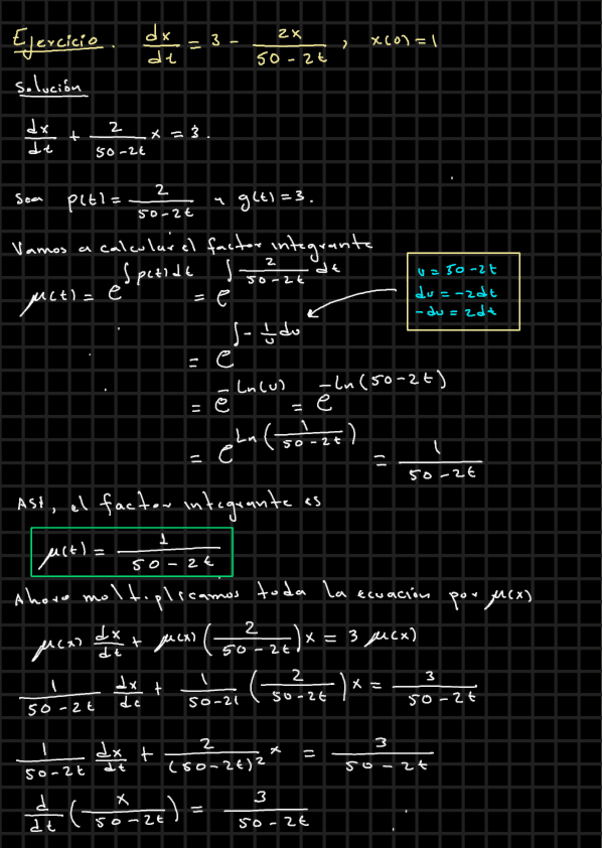 Ejercicio. dx/dt = 3 - 2x/(50-2t), x(0)=1
Solución
dx/dt + 2/(50-2t) x = 3.
Sea p(t) = 2/(50-2t) y g(t)=3.
Vamos a calcular el factor integrante
μ(t) = e^{∫p(t)dt} = e^{∫ 2/(50-2t) dt}
u = 50-2t
du = -2dt
-du = 2dt
= e^{∫ -1/u du}
= e^{-Ln(u)} = e^{-Ln(50-2t)}
= e^{Ln(1/(50-2t))} = 1/(50-2t)
Así, el factor integrante es
μ(t) = 1/(50-2t)
Ahora multiplicamos toda la ecuación por μ(x)
μ(x) dx/dt + μ(x) (2/(50-2t)) x = 3 μ(x)
1/(50-2t) dx/dt + 1/(50-2t) (2/(50-2t)) x = 3/(50-2t)
1/(50-2t) dx/dt + 2/(50-2t)² x = 3/(50-2t)
d/dt (x/(50-2t)) = 3/(50-2t)